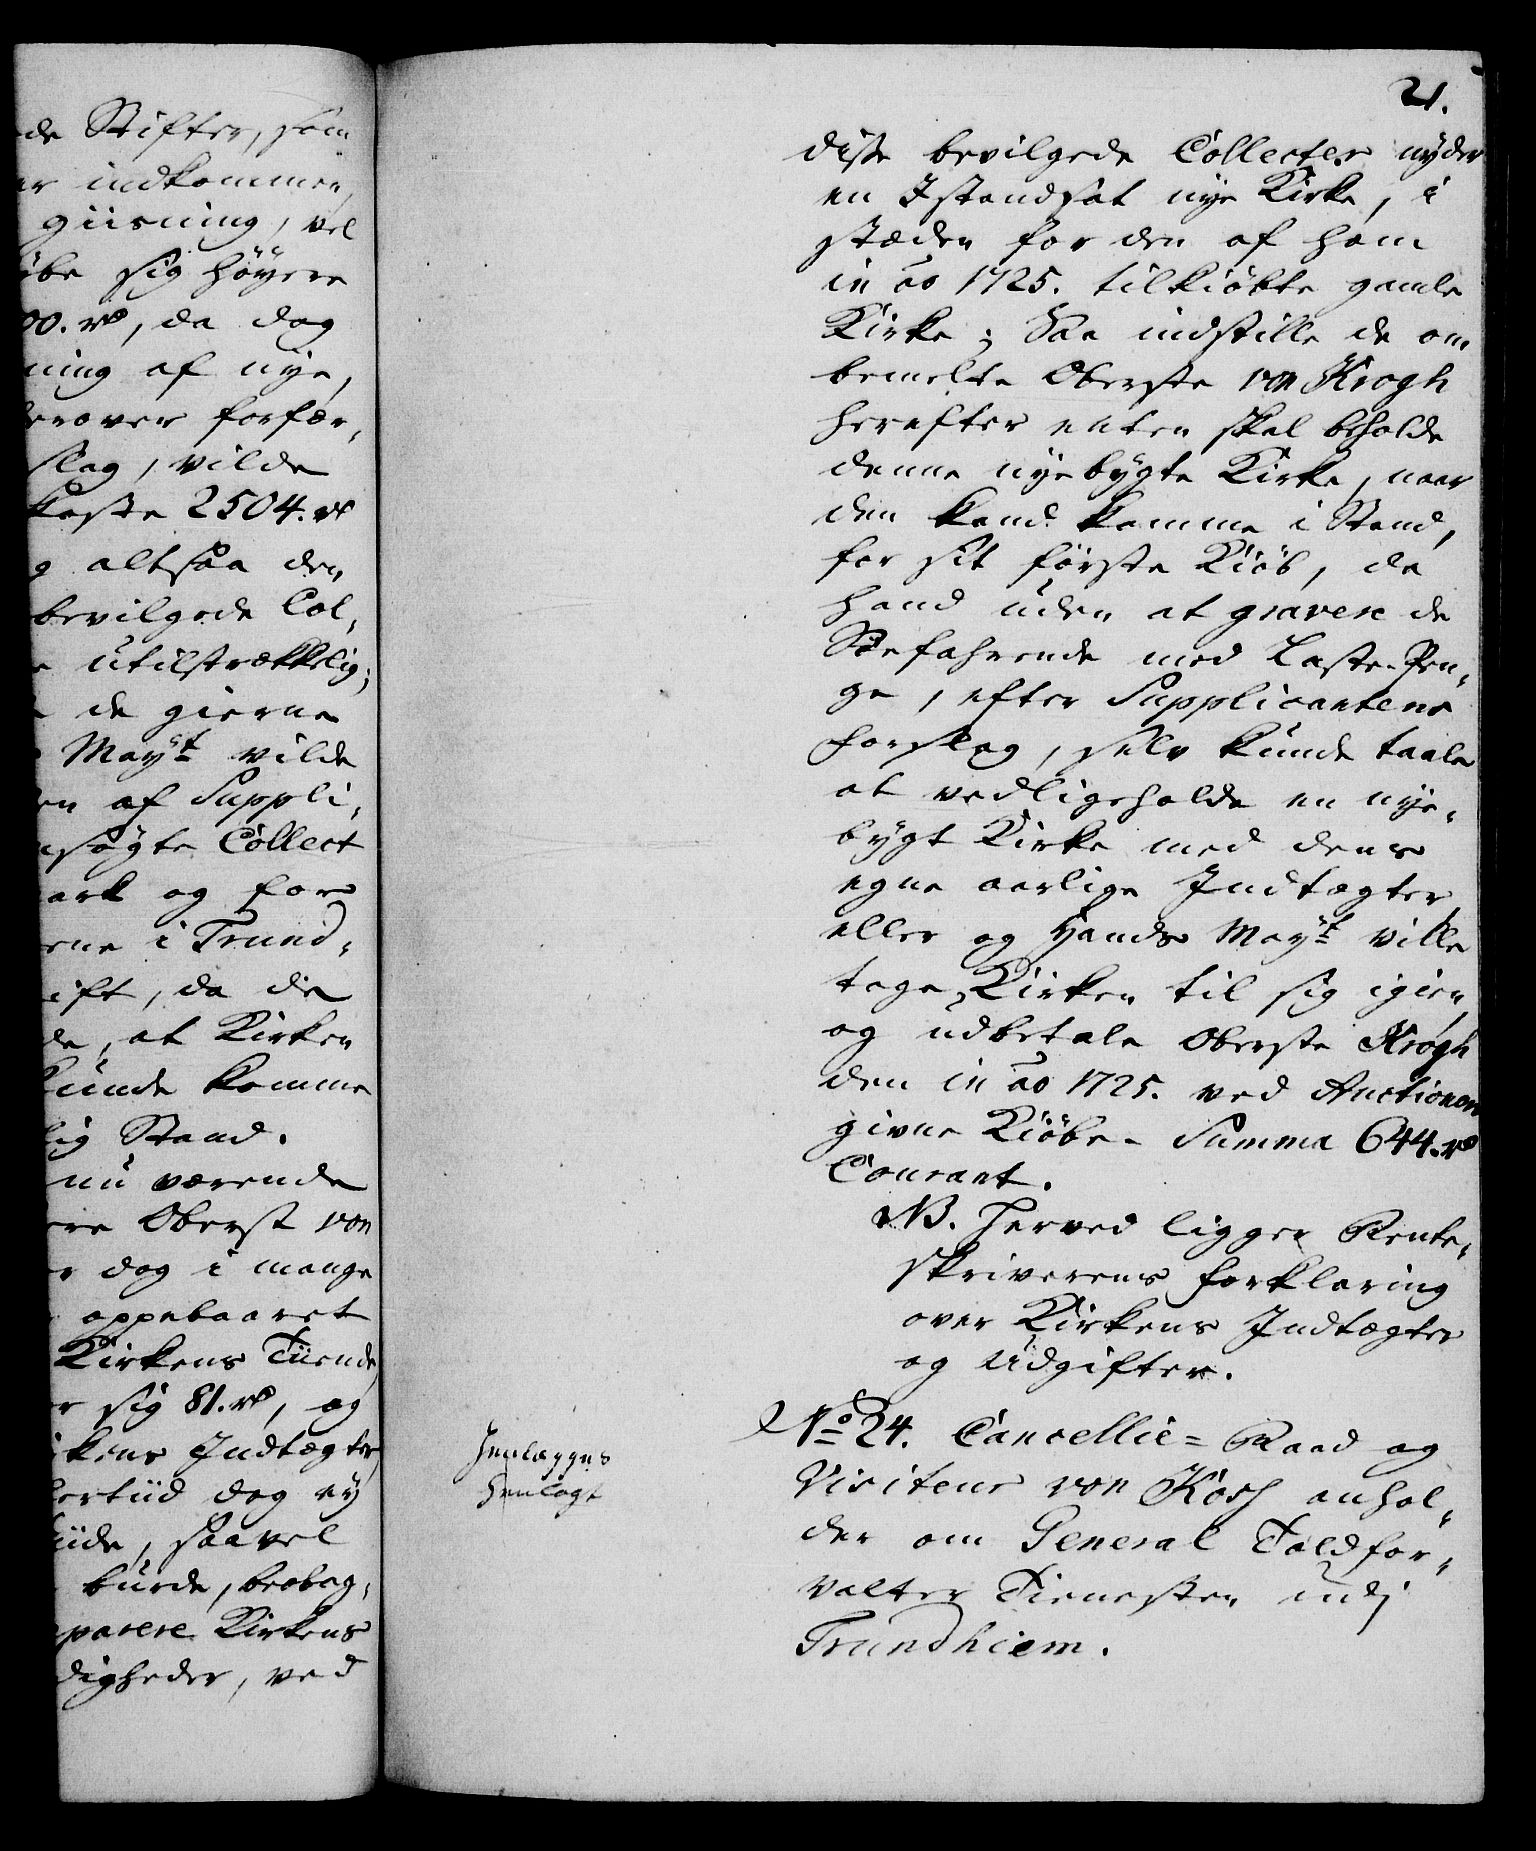 de Stifter, som
er indkommen,
giisning, vel
øbe sig høyere
00. rd, da dog
ning af nye,
derover forfær,
slag, vilde
koste 2504. rd
g altsaa den
bevilgede Col,
e utilstrækkelig;
de gierne
Mayt vilde
en af Suppli,
nsøgte Collect
ark og for
erne i Trund,
ift, da de
de, at Kirken
kunde komme
lig Stand.
nu værende
ere Oberst von
er dog i mange
oppebaaret
Kirkens Tiende
er sig 81. rd, og
kens Indtægter
lertiid dog ey
tiide, saavel
burde, beobag,
parere Kirkens
digheder, ved
21.
disse bevilgede Collecter nyder
en Istandsat nye Kirke, i
stæden for den af ham
in ao 1725. tilkiøbte gamle
Kirke; Saa indstille de om
bemelte Oberste von Krogh
herefter enten skal beholde
denne nyebygte Kirke, naar
den kand komme i Stand,
for sit første Kiöb, da
hand uden at gravere de
Søefahrende med Laste-Pen,
ge, efter Supplicantens
Forslag, selv kunde taale
at vedligeholde en nye,
bygt Kirke med dens
egne aarlige Indtægter,
eller og Hands Mayt ville
tage Kirken til sig igien,
og udbetale Oberste Krogh
den in ao 1725. ved Auctionen
givne Kiöbe- Summa 644. rd
Courant.
NB. Herved ligger Rente,
skriverens Forklaring
over Kirkens Indtægter
og Udgifter.
Henlægges
Henlagt
No 24. Cancellie= Raad og
Visiteur von Kösh anhol,
der om General Toldfor,
valter Tienesten udj
Trundhiem.